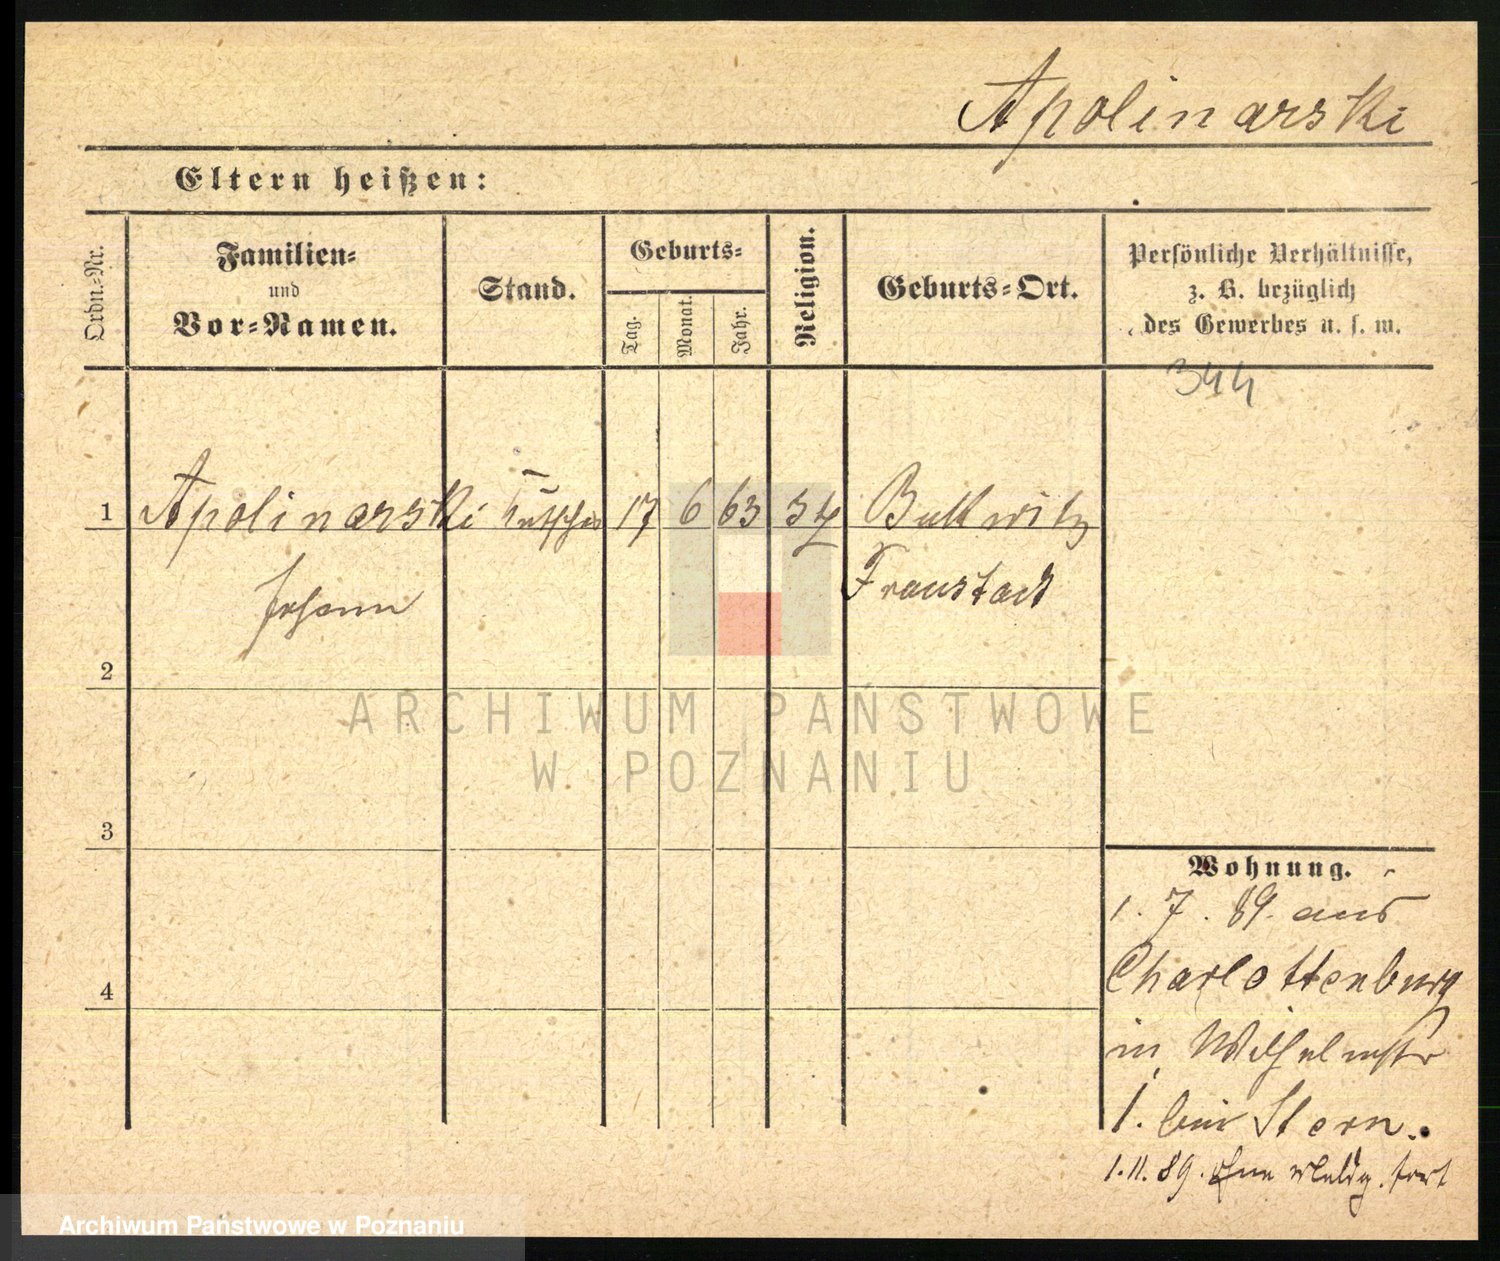 Apolinarski
Eltern heißen:
Ordn.-Nr.
Familien-
und
Vor-Namen.
Stand.
Geburts-
Tag.
Monat.
Jahr.
Religion.
Geburts-Ort.
Persönliche Verhältnisse,
z. B. bezüglich
des Gewerbes u. s. w.
344
1 Apolinarski Kutscher 17 6 63
Johann
Fraustadt
2
ARCHIWUM PAŃSTWOWE
W POZNANIU
3
4
Wohnung.
1. 7. 89. aus
Charlottenburg
in Wilhelmstr
1. bei Stern.
1. 11. 89. ohne Meldg. fort
Archiwum Państwowe w Poznaniu